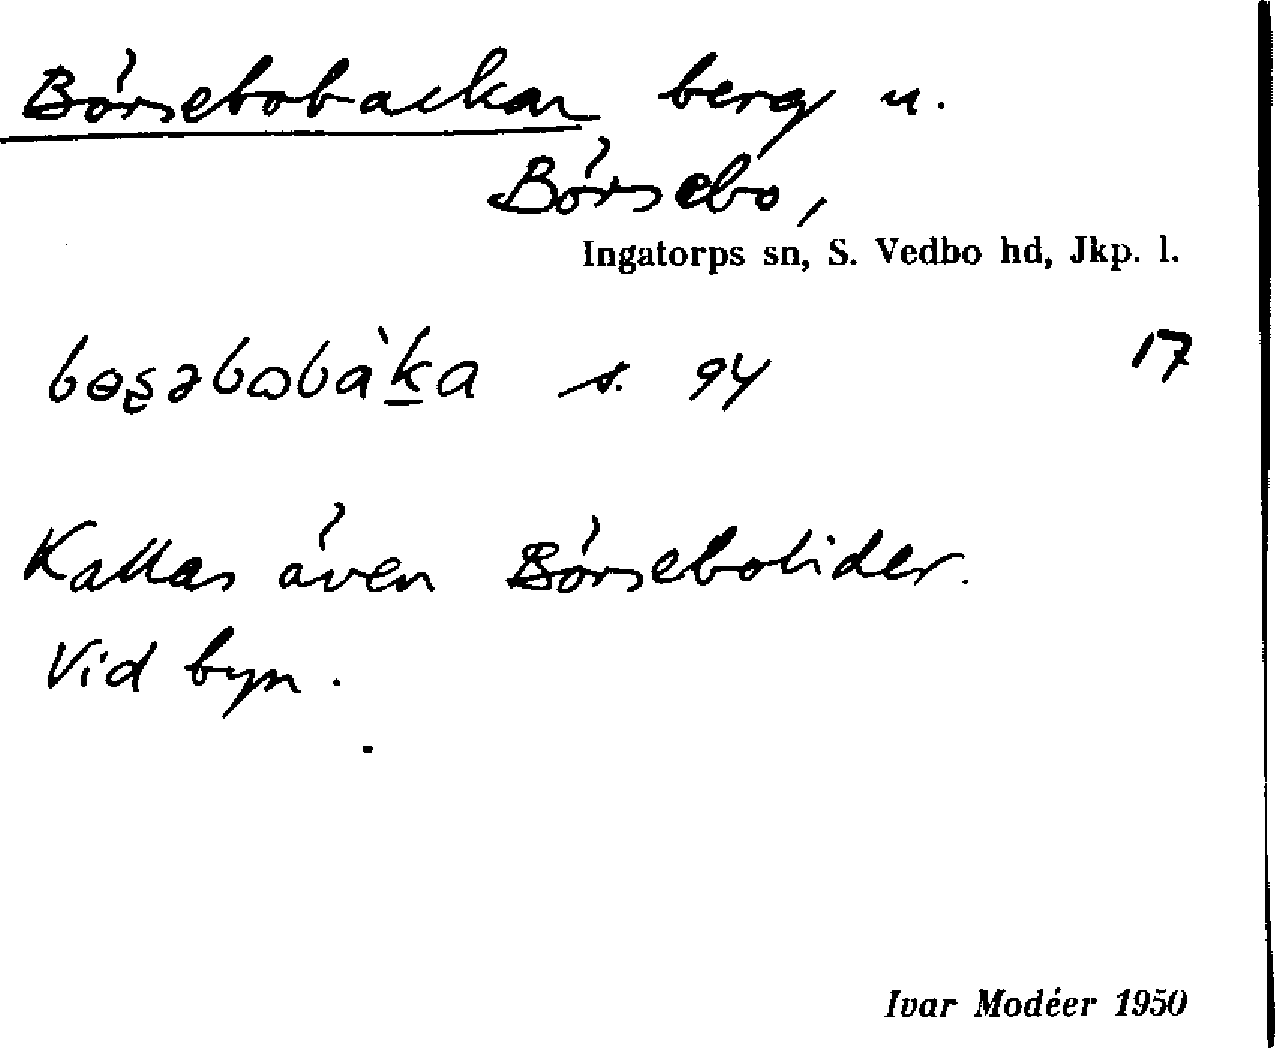 Börsebobackar berg u.
Börsebo,
Ingatorps sn, S. Vedbo hd, Jkp. l.
bɵʂəbɷbàk̲a s. 94 17
Kallas även Börsebolider.
Vid byn.
Ivar Modéer 1950